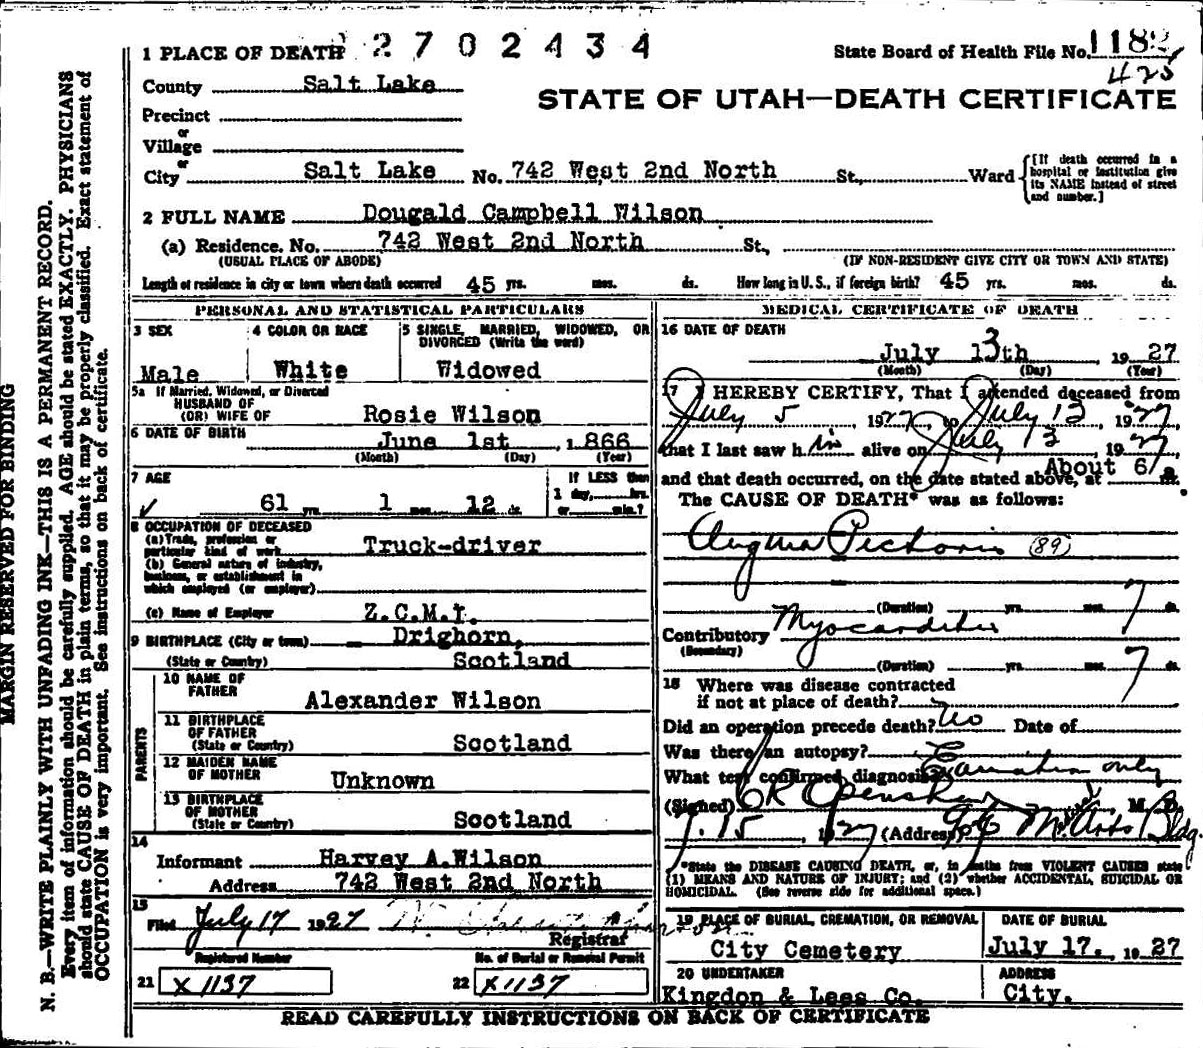 1 PLACE OF DEATH 2702434 State Board of Health File No. 1182
425
County Salt Lake
STATE OF UTAH—DEATH CERTIFICATE
Precinct
or
Village
or
City Salt Lake No. 742 West 2nd North St., Ward {[If death occurred in a hospital or institution give its NAME instead of street and number.]
2 FULL NAME Dougald Campbell Wilson
(a) Residence. No. 742 West 2nd North St.,
(USUAL PLACE OF ABODE) (IF NON-RESIDENT GIVE CITY OR TOWN AND STATE)
Length of residence in city or town where death occurred 45 yrs. mos. ds. How long in U. S., if foreign birth? 45 yrs. mos. ds.
PERSONAL AND STATISTICAL PARTICULARS
3 SEX 4 COLOR OR RACE 5 SINGLE, MARRIED, WIDOWED, OR
DIVORCED (Write the word)
Male White Widowed
5a If Married, Widowed, or Divorced
HUSBAND OF
(OR) WIFE OF Rosie Wilson
6 DATE OF BIRTH June 1st 1866
(Month) (Day) (Year)
7 AGE If LESS than
61 yrs. 1 mos. 12 ds. 1 day, hrs.
or min.?
8 OCCUPATION OF DECEASED
(a) Trade, profession or
particular kind of work Truck-driver
(b) General nature of industry,
business, or establishment in
which employed (or employer)
(c) Name of Employer Z.C.M.I.
9 BIRTHPLACE (City or town) Drighorn,
(State or Country) Scotland
PARENTS
10 NAME OF
FATHER Alexander Wilson
11 BIRTHPLACE
OF FATHER
(State or Country) Scotland
12 MAIDEN NAME
OF MOTHER Unknown
13 BIRTHPLACE
OF MOTHER
(State or Country) Scotland
14
Informant Harvey A.Wilson
Address 742 West 2nd North
15
Filed July 17 1927
Registrar
Registered Number No. of Burial or Removal Permit
21 X 1137 22 X 1137
MEDICAL CERTIFICATE OF DEATH
16 DATE OF DEATH
July 13th 1927
(Month) (Day) (Year)
17 I HEREBY CERTIFY, That I attended deceased from
July 5 1927, to July 13 1927
that I last saw h im alive on July 13 1927
and that death occurred, on the date stated above, at About 6 a m.
The CAUSE OF DEATH* was as follows:
Angina Pectoris (89)
(Duration) yrs. mos. 7 ds.
Contributory Myocarditis
(Secondary)
(Duration) yrs. mos. 7 ds.
18 Where was disease contracted
if not at place of death?
Did an operation precede death? No Date of
Was there an autopsy?
What test confirmed diagnosis? only
(Signed) Openshaw M. D.
7. 15 1927 (Address) Bldg.
*State the DISEASE CAUSING DEATH, or, in deaths from VIOLENT CAUSES state
(1) MEANS AND NATURE OF INJURY; and (2) whether ACCIDENTAL, SUICIDAL OR
HOMICIDAL. (See reverse side for additional space.)
19 PLACE OF BURIAL, CREMATION, OR REMOVAL DATE OF BURIAL
City Cemetery July 17. 1927
20 UNDERTAKER ADDRESS
Kingdon & Lees Co. City.
READ CAREFULLY INSTRUCTIONS ON BACK OF CERTIFICATE
MARGIN RESERVED FOR BINDING
N. B.—WRITE PLAINLY WITH UNFADING INK—THIS IS A PERMANENT RECORD.
Every item of information should be carefully supplied. AGE should be stated EXACTLY. PHYSICIANS
should state CAUSE OF DEATH in plain terms, so that it may be properly classified. Exact statement of
OCCUPATION is very important. See instructions on back of certificate.